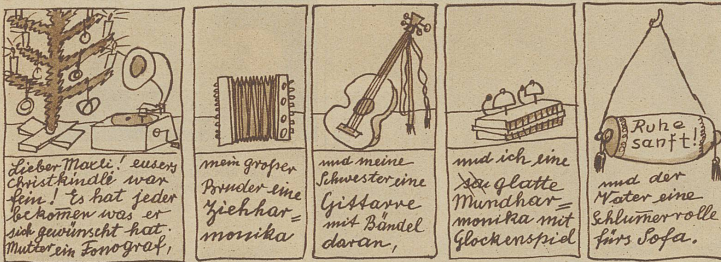 Lieber Maxli! eusers
Christkindle war
fein! Es hat jeder
bekomen was er
sich gewünscht hat.
Mutter ein Fonograf,
mein großer
Bruder eine
Ziehhar=
monika
und meine
Schwester eine
Gittarre
mit Bändel
daran,
und ich eine
glatte
Mundhar=
monika mit
Glockenspiel
Ruhe
sanft!
und der
Vater eine
Schlumerrolle
fürs Sofa.